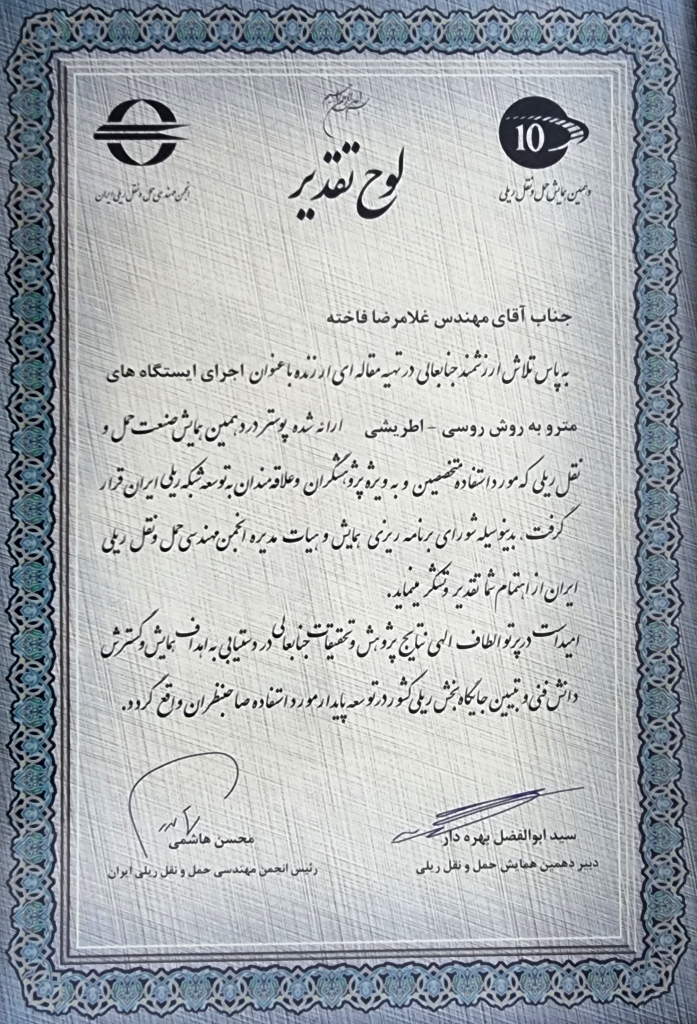 بسم الله الرحمن الرحیم
10
دهمین همایش حمل و نقل ریلی
لوح تقدیر
انجمن مهندسی حمل و نقل ریلی ایران
جناب آقای مهندس غلامرضا فاخته
به پاس تلاش ارزشمند جنابعالی در تهیه مقاله ای ارزنده با عنوان اجرای ایستگاه های
مترو به روش روسی - اطریشی ارائه شده پوستر در دهمین همایش صنعت حمل و
نقل ریلی که مورد استفاده متخصصین و به ویژه پژوهشگران و علاقه مندان به توسعه شبکه ریلی ایران قرار
گرفت، بدینوسیله شورای برنامه ریزی همایش و هیات مدیره انجمن مهندسی حمل و نقل ریلی
ایران از اهتمام شما تقدیر و تشکر مینماید.
امید است در پرتو الطاف الهی نتایج پژوهش و تحقیقات جنابعالی در دستیابی به اهداف همایش و گسترش
دانش فنی و تبیین جایگاه بخش ریلی کشور در توسعه پایدار مورد استفاده صاحبنظران واقع گردد.
سید ابوالفضل بهره دار
دبیر دهمین همایش حمل و نقل ریلی
محسن هاشمی
رئیس انجمن مهندسی حمل و نقل ریلی ایران